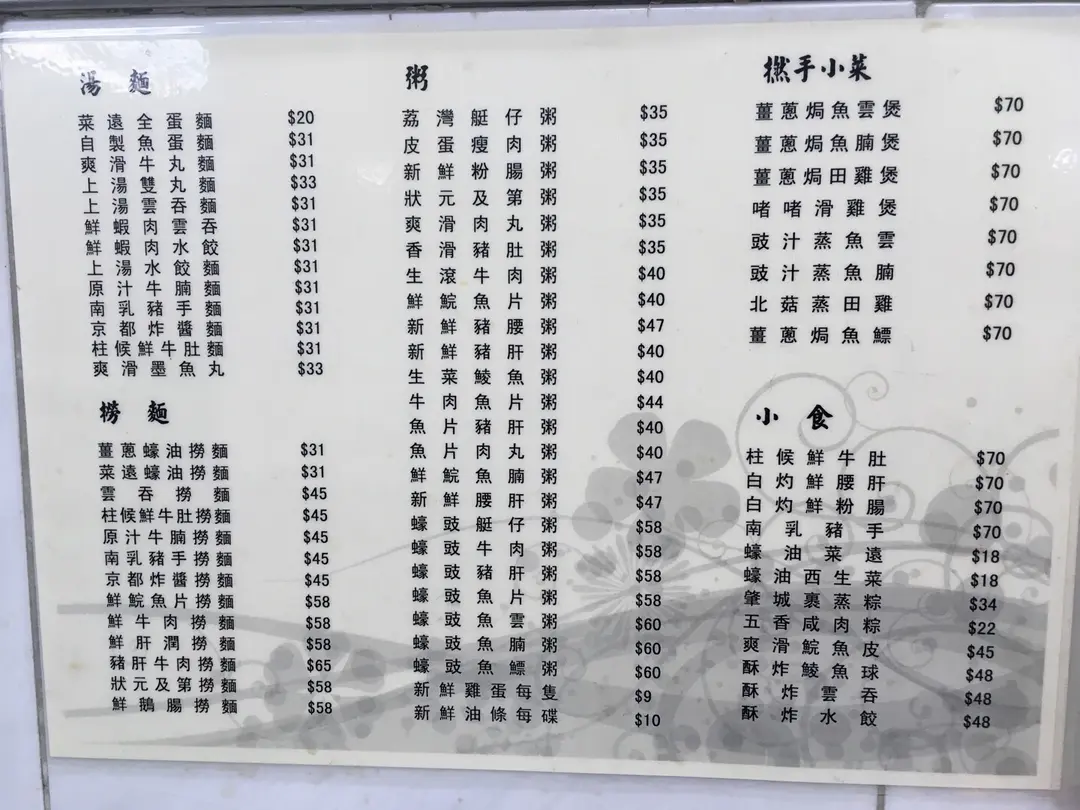 湯麵
菜遠全蛋麵 $20
自製魚蛋麵 $31
爽滑牛丸麵 $31
上湯雙丸麵 $33
上湯雲吞麵 $31
鮮蝦肉雲吞 $31
鮮蝦肉水餃 $31
上湯水餃麵 $31
原汁牛腩麵 $31
南乳豬手麵 $31
京都炸醬麵 $31
柱候鮮牛肚麵 $31
爽滑墨魚丸 $33
撈麵
薑蔥蠔油撈麵 $31
菜遠蠔油撈麵 $31
雲吞撈麵 $45
柱候鮮牛肚撈麵 $45
原汁牛腩撈麵 $45
南乳豬手撈麵 $45
京都炸醬撈麵 $45
鮮鯇魚片撈麵 $58
鮮牛肉撈麵 $58
鮮肝潤撈麵 $58
豬肝牛肉撈麵 $65
狀元及第撈麵 $58
鮮鵝腸撈麵 $58
粥
荔灣艇仔粥 $35
皮蛋瘦肉粥 $35
新鮮粉腸粥 $35
狀元及第粥 $35
爽滑肉丸粥 $35
香滑豬肚粥 $35
生滾牛肉粥 $40
鮮鯇魚片粥 $40
新鮮豬腰粥 $47
新鮮豬肝粥 $40
生菜鯪魚粥 $40
牛肉魚片粥 $44
魚片豬肝粥 $40
魚片肉丸粥 $40
鮮鯇魚腩粥 $47
新鮮腰肝粥 $47
蠔豉艇仔粥 $58
蠔豉牛肉粥 $58
蠔豉豬肝粥 $58
蠔豉魚片粥 $58
蠔豉魚雲粥 $60
蠔豉魚腩粥 $60
蠔豉魚鰾粥 $60
新鮮雞蛋每隻 $9
新鮮油條每碟 $10
撚手小菜
薑蔥焗魚雲煲 $70
薑蔥焗魚腩煲 $70
薑蔥焗田雞煲 $70
啫啫滑雞煲 $70
豉汁蒸魚雲 $70
豉汁蒸魚腩 $70
北菇蒸田雞 $70
薑蔥焗魚鰾 $70
小食
柱候鮮牛肚 $70
白灼鮮腰肝 $70
白灼鮮粉腸 $70
南乳豬手 $70
蠔油菜遠 $18
蠔油西生菜 $18
肇城裹蒸粽 $34
五香咸肉粽 $22
爽滑鯇魚皮 $45
酥炸鯪魚球 $48
酥炸雲吞 $48
酥炸水餃 $48